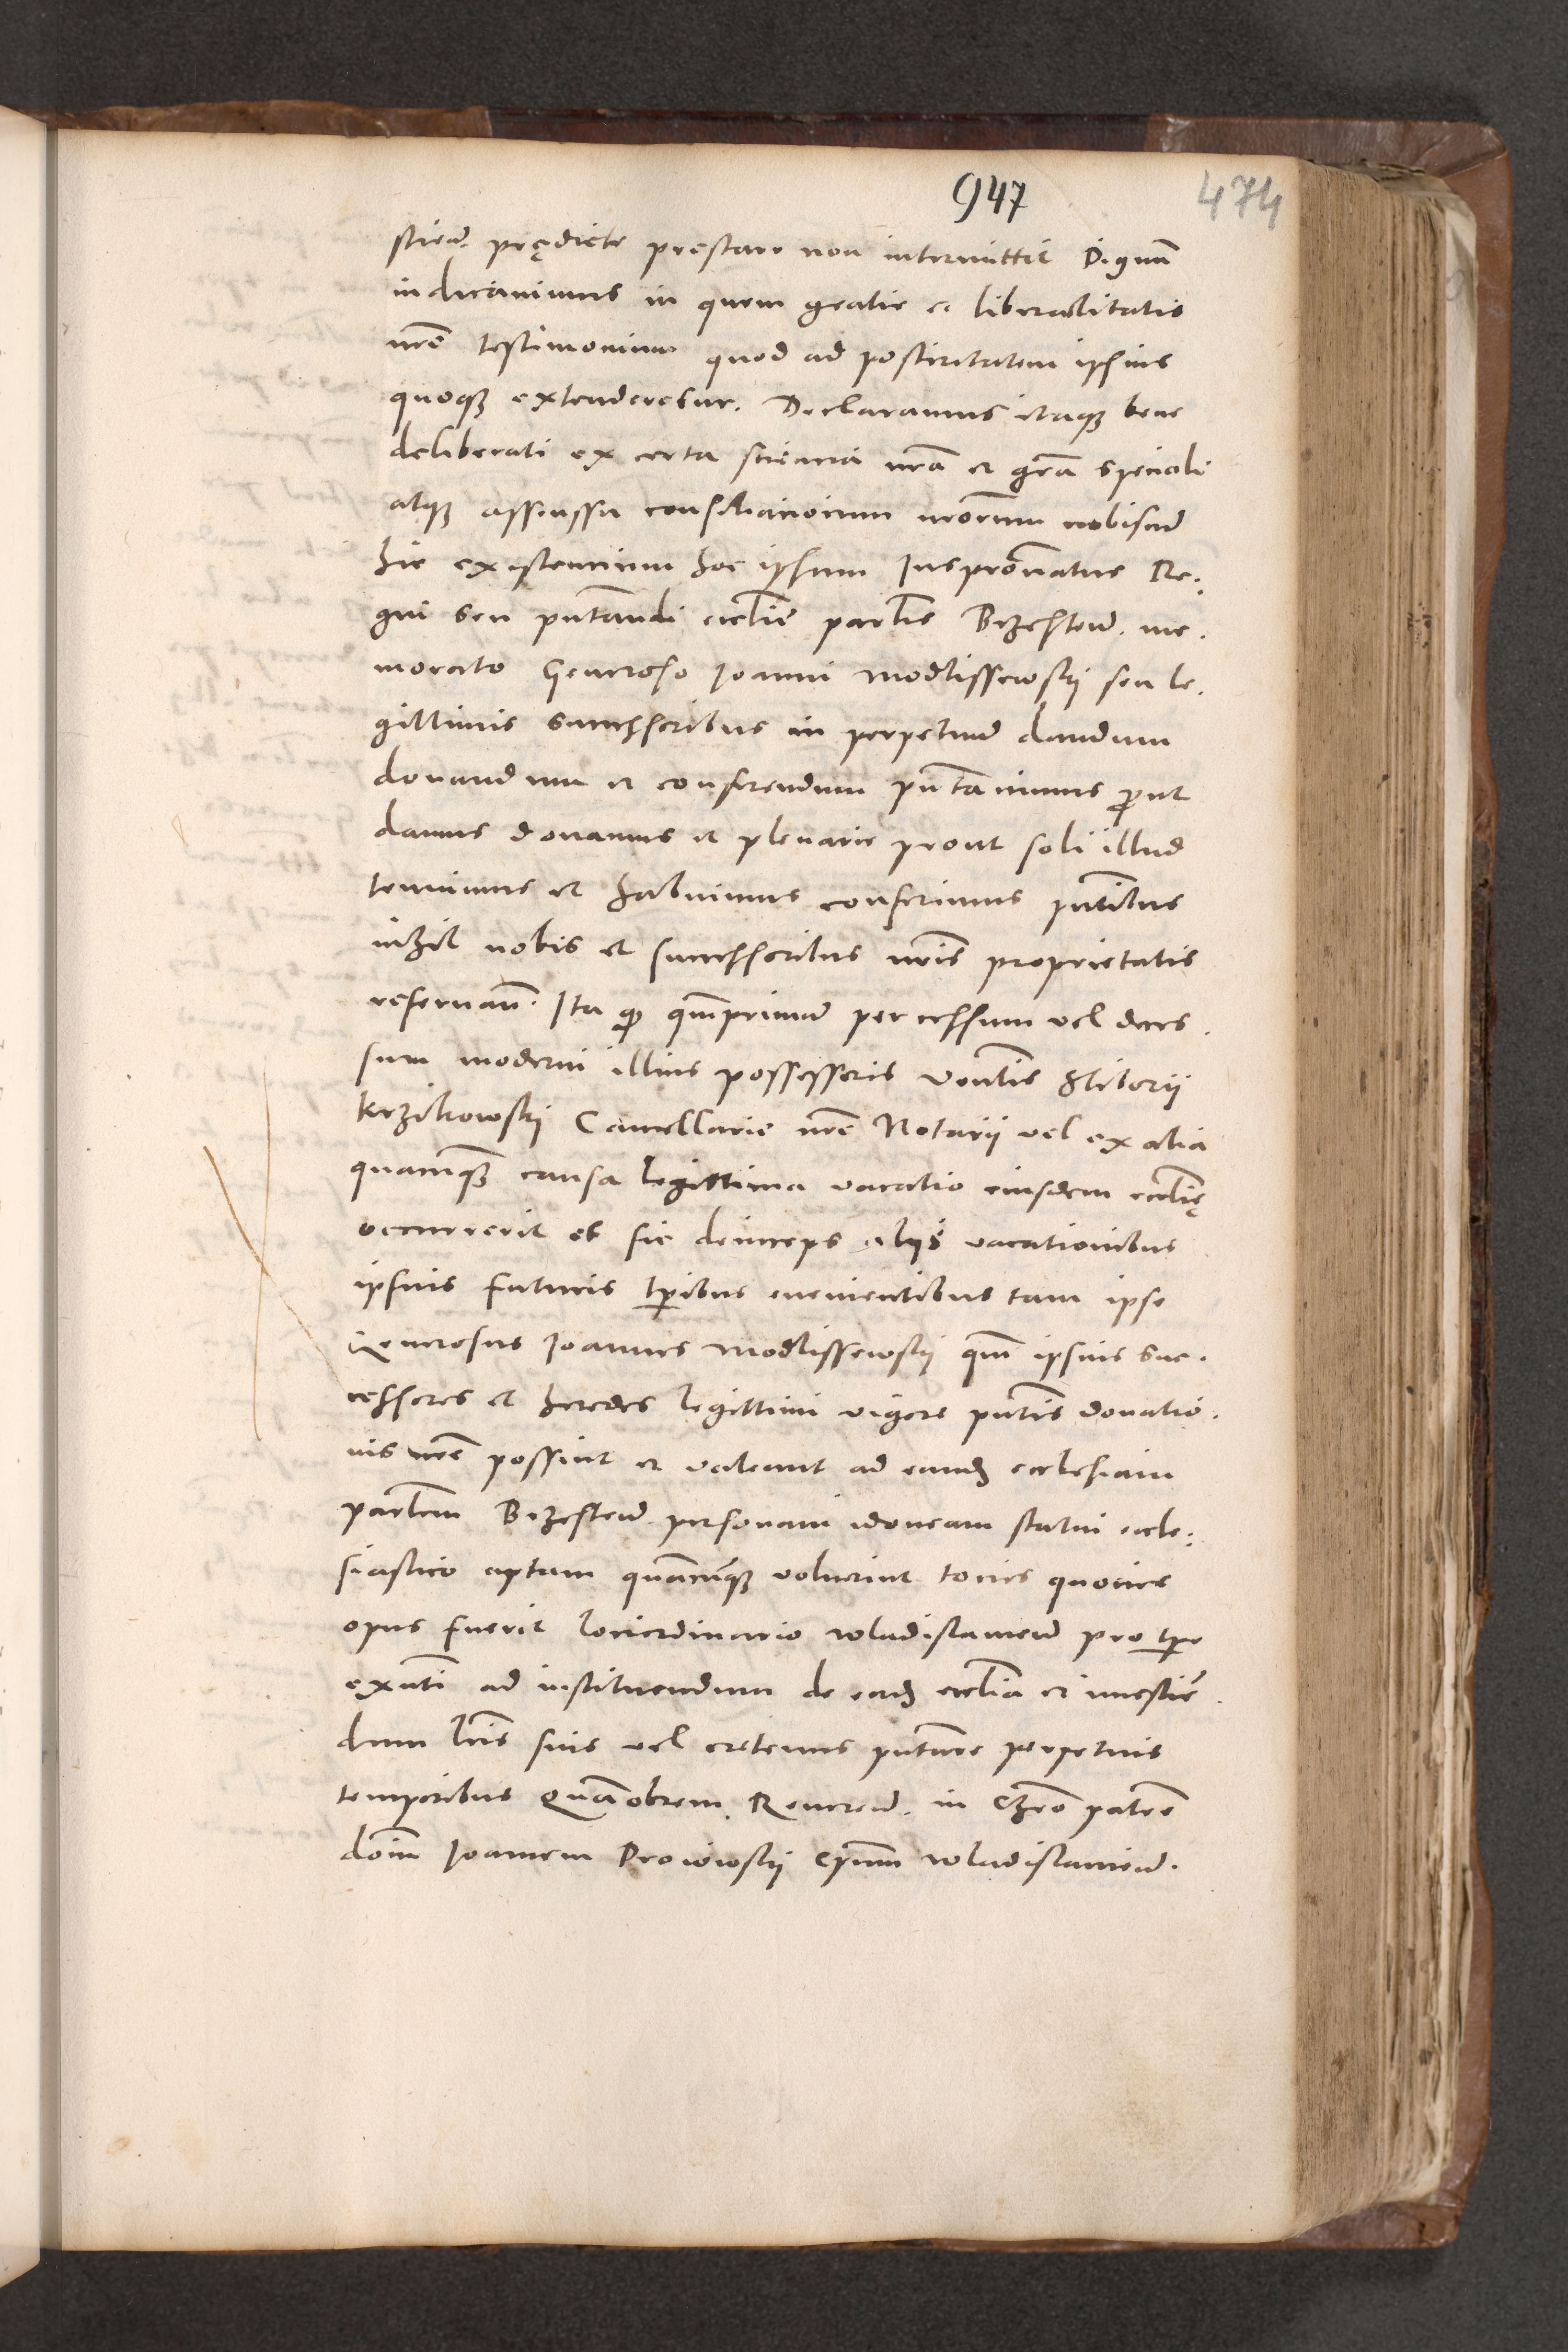 947
474
sticen. prędicte prestare non intermittit Dignũ
indicavimus in quem gratie et liberalitatis
nrẽ testimonium quod ad posteritatem ipsius
quoqȝ extenderetur. Declaramus itaqȝ bene
deliberati ex certa sciencia nrã et grã speciali
atqȝ assenssu consiliariorum nrorum nobiscũ
hic existencium hoc ipsum Juspronatus Re:
gni seu pñtandi ecclie parlis Brzesten. me.
morato Generoso Joanni Modlissewskij seu le.
gittimis successoribus in perpetuũ dandum
donandum et conferendum pñtavimus prout
damus donamus et plenarie prout soli illud
tenuimus et habuimus conferimus pñtibus
nihil nobis et successoribus nris proprietatis
reservañ. Ita qȝ qmprimũ per cessum vel deces.
sum moderni illius possessoris Venlis Tiborii
Krzikowskij Cancellarie nrẽ Notarij vel ex alia
quacunqȝ causa legittima vacatio eiusdem ecclię
occurrerit et sic deinceps alijs vacationibus
ipsius futuris tpibus evenientibus tam ipse
Generosus Joannes Modlissewskij qm ipsius suc.
cessores et heredes legittimi vigore pñtis donatio.
nis nrẽ possint et valeant ad eandȝ ecclesiam
parlem Brzesten. personam idoneam statui eccle:
siastico aptam quamcunqȝ voluerint tocies quocies
opus fuerit Lociordinario Wladislavien. pro tpe
exñti ad instituendum de eadȝ ecclia et investiẽ
dum lris suis vel cretenus pñtare perpetuis
temporibus Quamobrem Reverend. in Chro patrẽ
dom Joannem Droiowskij Epum Wladislavien.